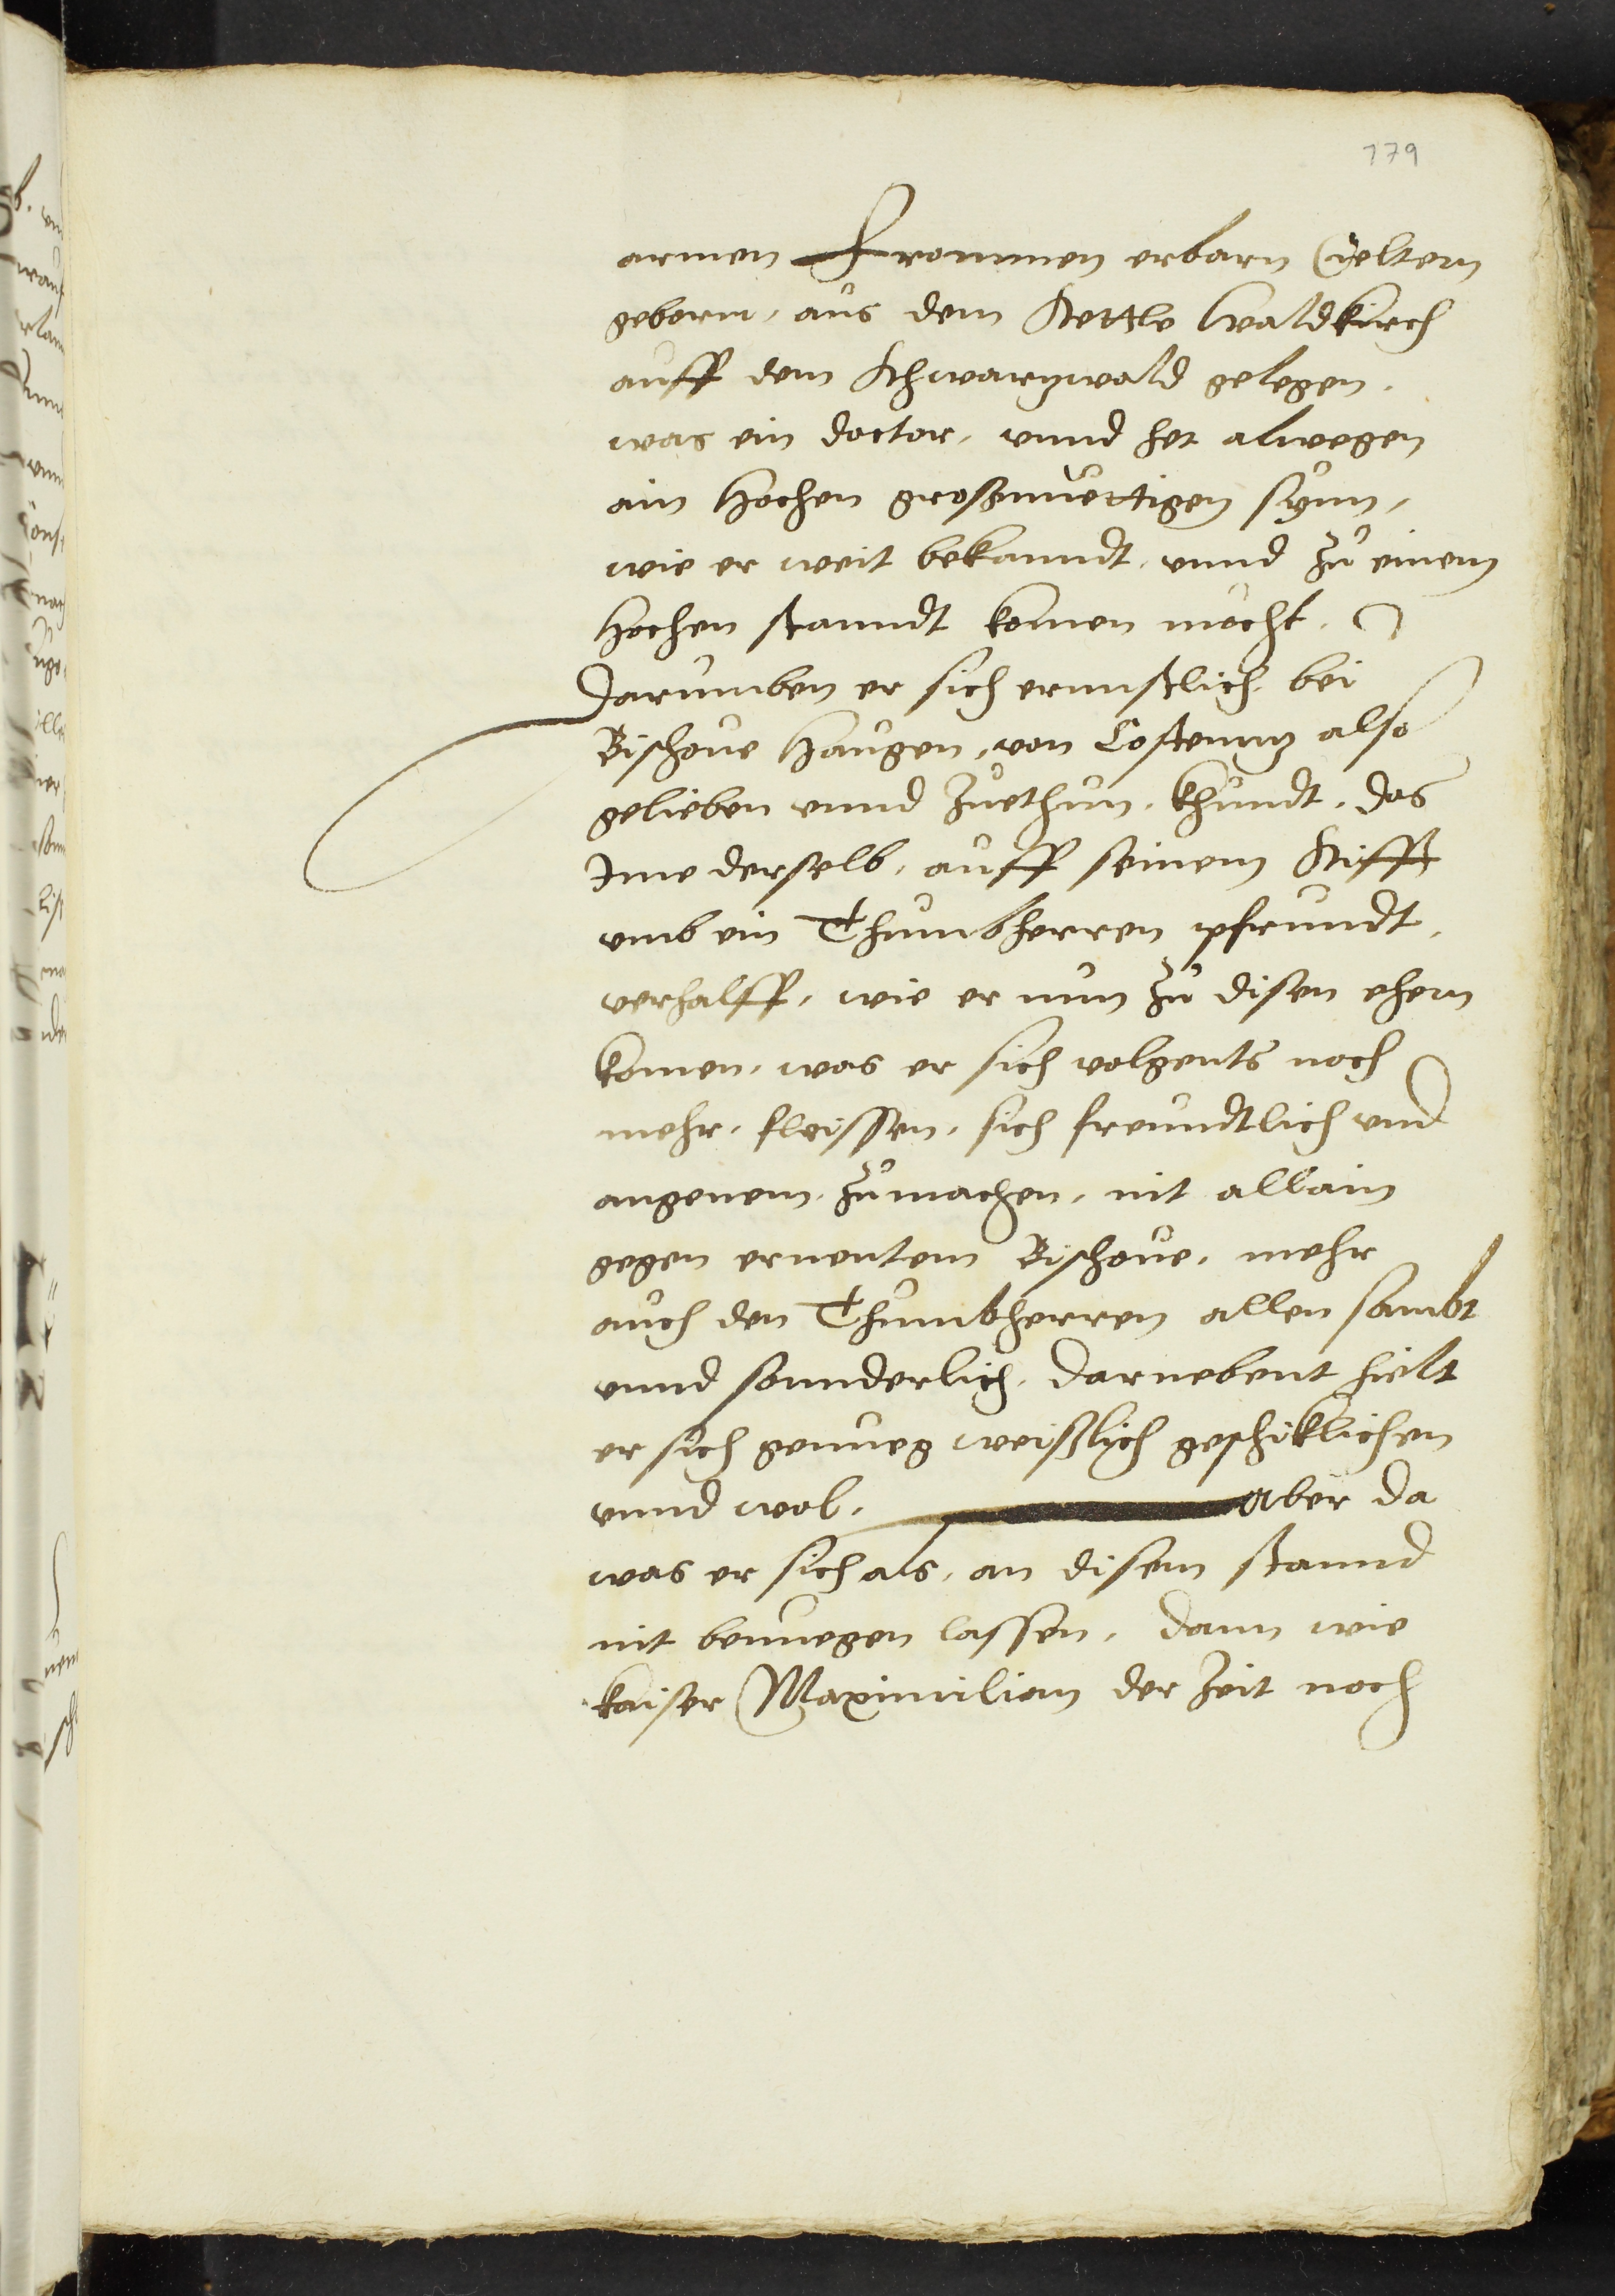 179
armen Frommen erbarn Eltern
geborn, aus dem Stettle Waldkirch
auff dem Schwarzwald gelegen,
was ein doctor, vnnd het alwegen
ain Hochen großmüettigen synn,
wie er weit bekanndt, vnnd zu einem
Hochen standt komen möcht,
Darumben er sich ernnstlich, bei
Bischoue Haugen, von Costenntz also
gelieben vnnd zuethun, khundt, das
Ime derselb, auff seinem Stifft
vmb ein Thumbherren pfrundt,
verhalff, wie er nun zu disen ehern
komen, was er sich volgents noch
mehr, fleissen, sich freundtlich vnd
angenem, zumachen, nit allain
gegen ernentem Bischoue, mehr
auch den Thumbherren allen sambt
vnnd sonnderlich, Darnebent hielt
er sich genueg weißlich geschiklichen
vnnd wol, Aber da
was er sich als, an disem stannd
nit benuegen lassen, Dann wie
kaiser Maximilian der Zeit noch